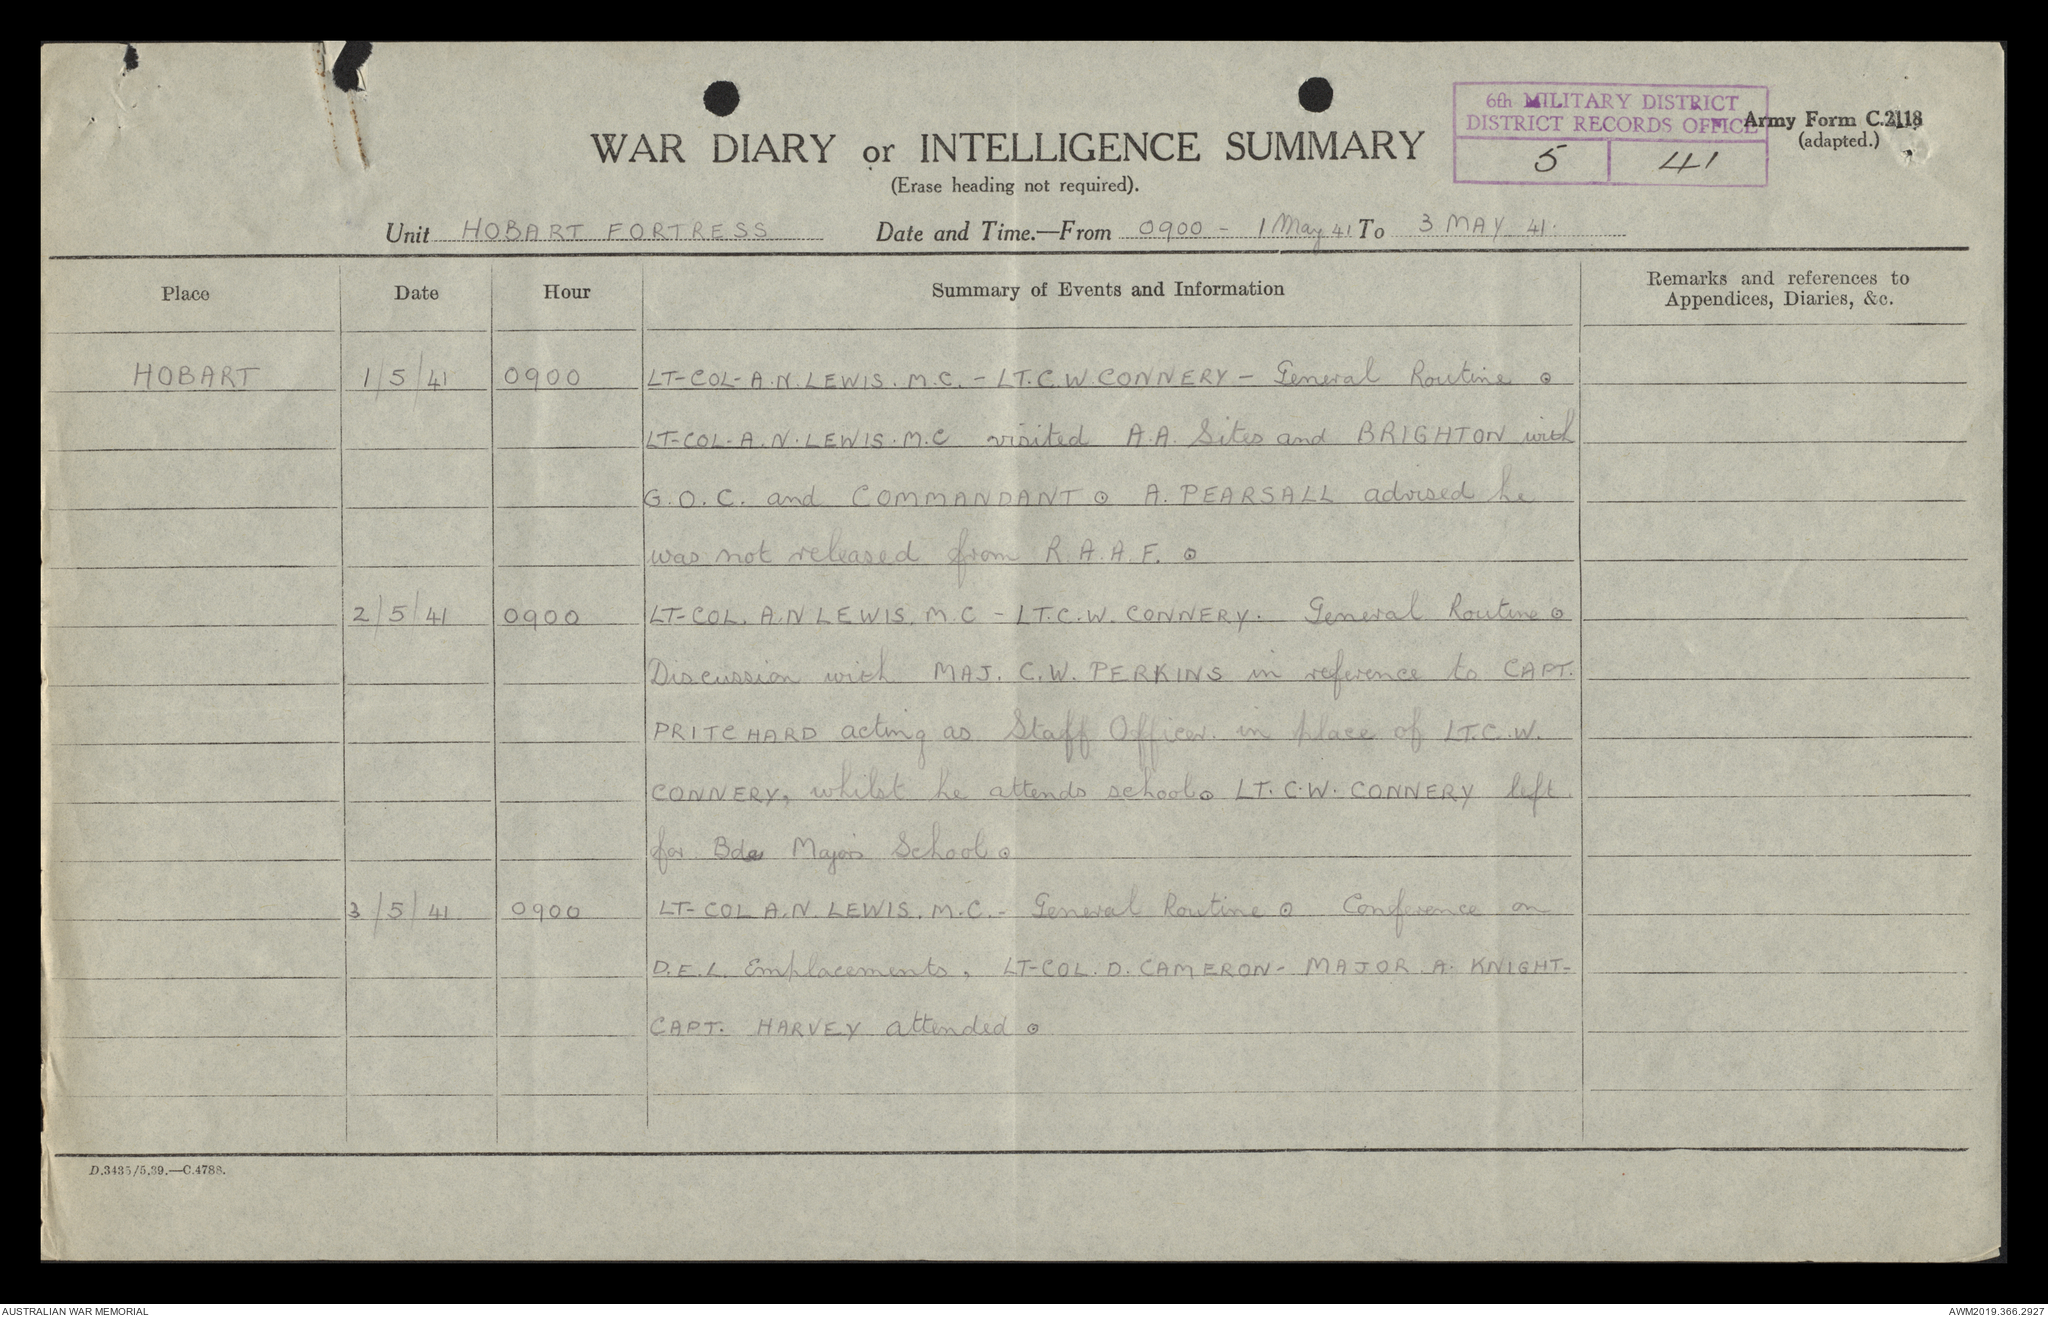 6th MILITARY DISTRICT
DISTRICT RECORDS OFFICE
5 41
Army Form C.2118
(adapted.)
WAR DIARY or INTELLIGENCE SUMMARY
(Erase heading not required).
Unit HOBART FORTRESS Date and Time.—From 0900 - 1 May 41 To 3 MAY 41.
Place Date Hour Summary of Events and Information Remarks and references to
Appendices, Diaries, &c.
HOBART 1/5/41 0900 LT-COL-A.N.LEWIS.M.C. - LT.C.W.CONNERY - General Routine ⊙
LT-COL-A.N.LEWIS.M.C visited A.A. Sites and BRIGHTON with
G.O.C. and COMMANDANT ⊙ A. PEARSALL advised he
was not released from R.A.A.F. ⊙
2/5/41 0900 LT-COL. A.N LEWIS. M.C - LT.C.W. CONNERY. General Routine ⊙
Discussion with MAJ. C.W. PERKINS in reference to CAPT.
PRITCHARD acting as Staff Officer in place of LT.C.W.
CONNERY, whilst he attends school ⊙ LT. C.W. CONNERY left
for Bde Majors School ⊙
3/5/41 0900 LT-COL A.N. LEWIS. M.C. - General Routine ⊙ Conference on
D.E.L. Emplacements, LT-COL. D. CAMERON - MAJOR A. KNIGHT -
CAPT. HARVEY attended ⊙
D.3435/5.39.—C.4788.
AUSTRALIAN WAR MEMORIAL
AWM2019.366.2927